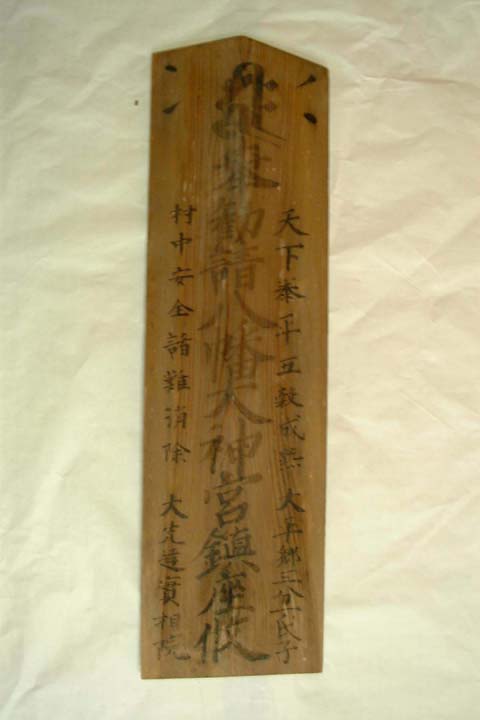 天下泰平五穀成熟 郷三分一氏子
奉勧請八幡大神宮鎮座攸
村中安全諸難消除 大先達實相院